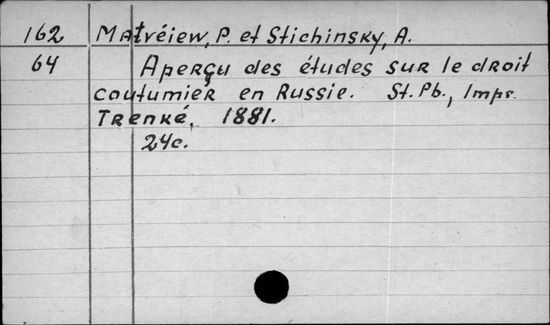 162 Matvéiew, P. et Stichinsky, A.
64 Aperçu des études sur le droit
coutumier en Russie. St. Pb., Impr.
Trenké, 1881.
24c.